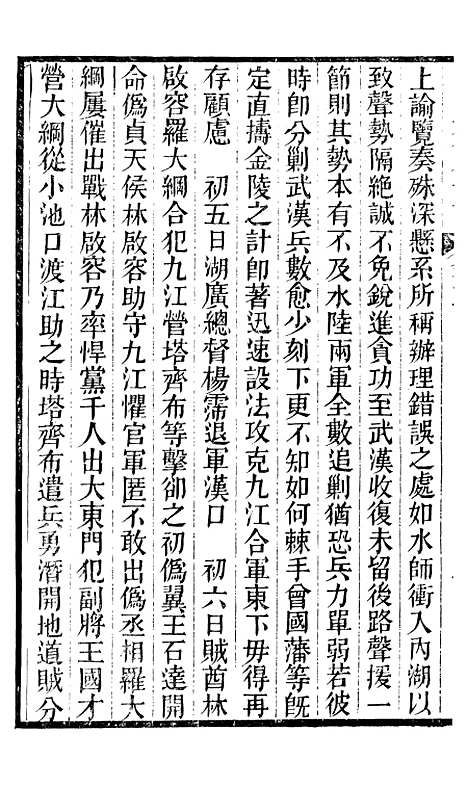 上諭覽奏殊深懸系所稱辦理錯誤之處如水師衝入內湖以
致聲勢隔絶誠不免銳進貪功至武漢收復未留後路聲援一
節則其勢本有不及水陸兩軍全數追剿猶恐兵力單弱若彼
時卽分剿武漢兵數愈少刻下更不知如何棘手曾國藩等旣
定直擣金陵之計卽著迅速設法攻克九江合軍東下毋得再
存顧慮　初五日湖廣總督楊霈退軍漢口　初六日賊酋林
啟容羅大綱合犯九江營塔齊布等擊卻之初僞翼王石達開
命僞貞天侯林啟容助守九江懼官軍匿不敢出僞丞相羅大
綱屢催出戰林啟容乃率悍黨千人出大東門犯副將王國才
營大綱從小池口渡江助之時塔齊布遣兵勇潛開地道賊分